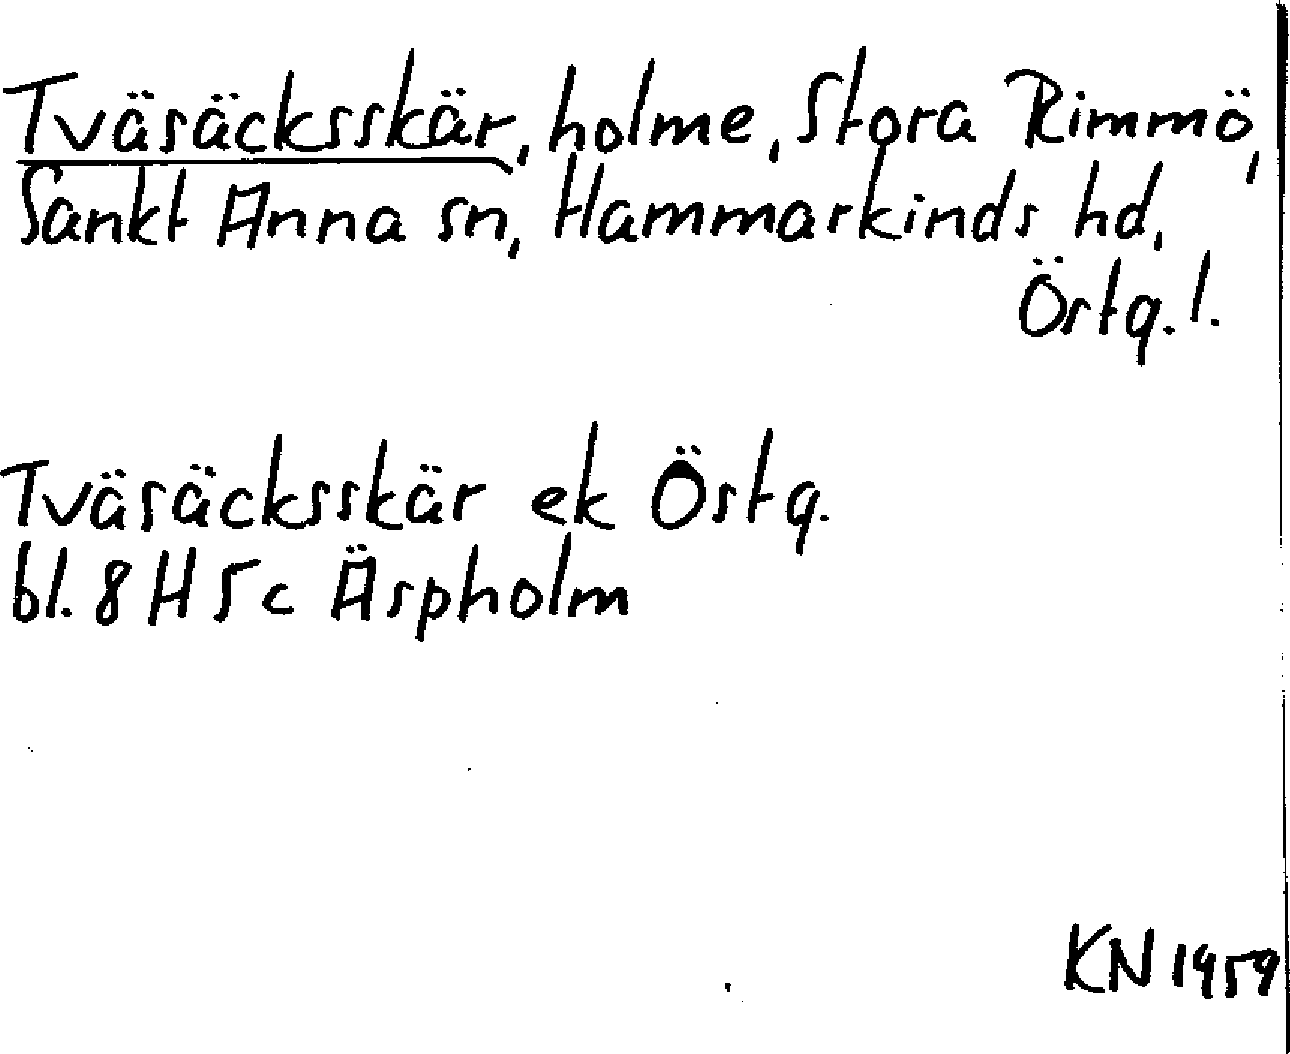 Tväsäcksskär, holme, Stora Rimmö,
Sankt Anna sn, Hammarkinds hd,
Östg.l.
Tväsäcksskär ek Östg.
bl. 8 H 5c Äspholm
KN 1959